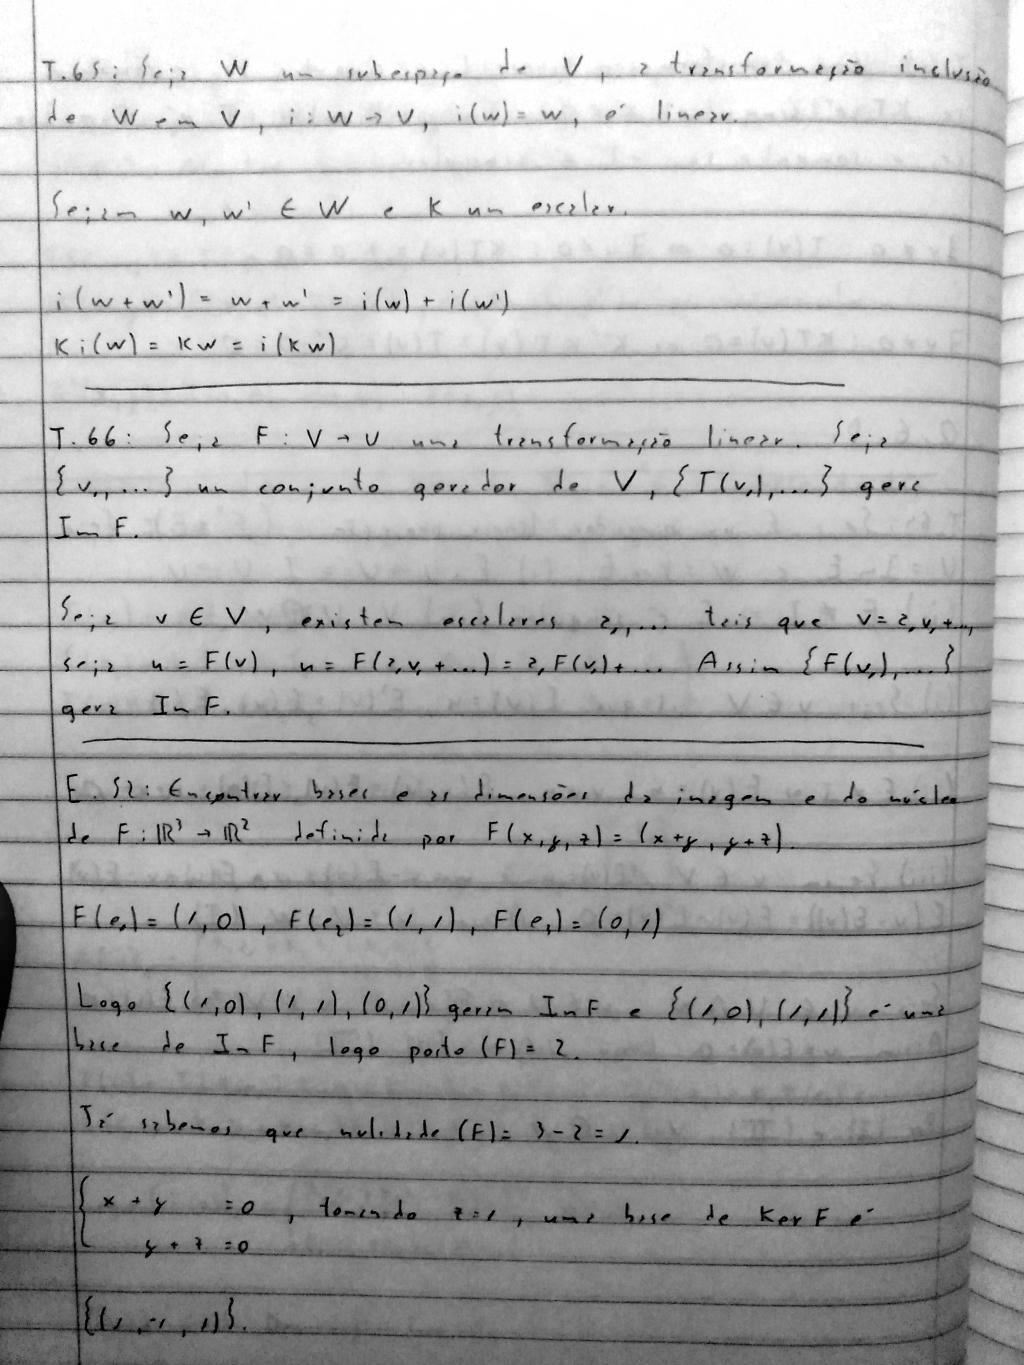 T.65: Seja W um subespaço de V, a transformação inclusão
de W em V, i: W → V, i(w) = w, é linear.
Sejam w, w' ∈ W e K um escalar.
i(w + w') = w + w' = i(w) + i(w')
K i(w) = Kw = i(Kw)
T.66: Seja F: V → U uma transformação linear. Seja
{v₁, ...} um conjunto gerador de V, {T(v₁), ...} gera
Im F.
Seja v ∈ V, existem escalares a₁, ... tais que v = a₁v₁ + ...,
seja u = F(v), u = F(a₁v₁ + ...) = a₁F(v₁) + ... Assim {F(v₁), ...}
gera Im F.
E.52: Encontrar bases e as dimensões da imagem e do núcleo
de F: ℝ³ → ℝ² definida por F(x, y, z) = (x+y, y+z).
F(e₁) = (1,0), F(e₂) = (1,1), F(e₃) = (0,1)
Logo {(1,0), (1,1), (0,1)} geram Im F e {(1,0), (1,1)} é uma
base de Im F, logo posto (F) = 2.
Já sabemos que nulidade (F) = 3 - 2 = 1.
{ x + y = 0, tomando z = 1, uma base de Ker F é
y + z = 0
{(1, -1, 1)}.